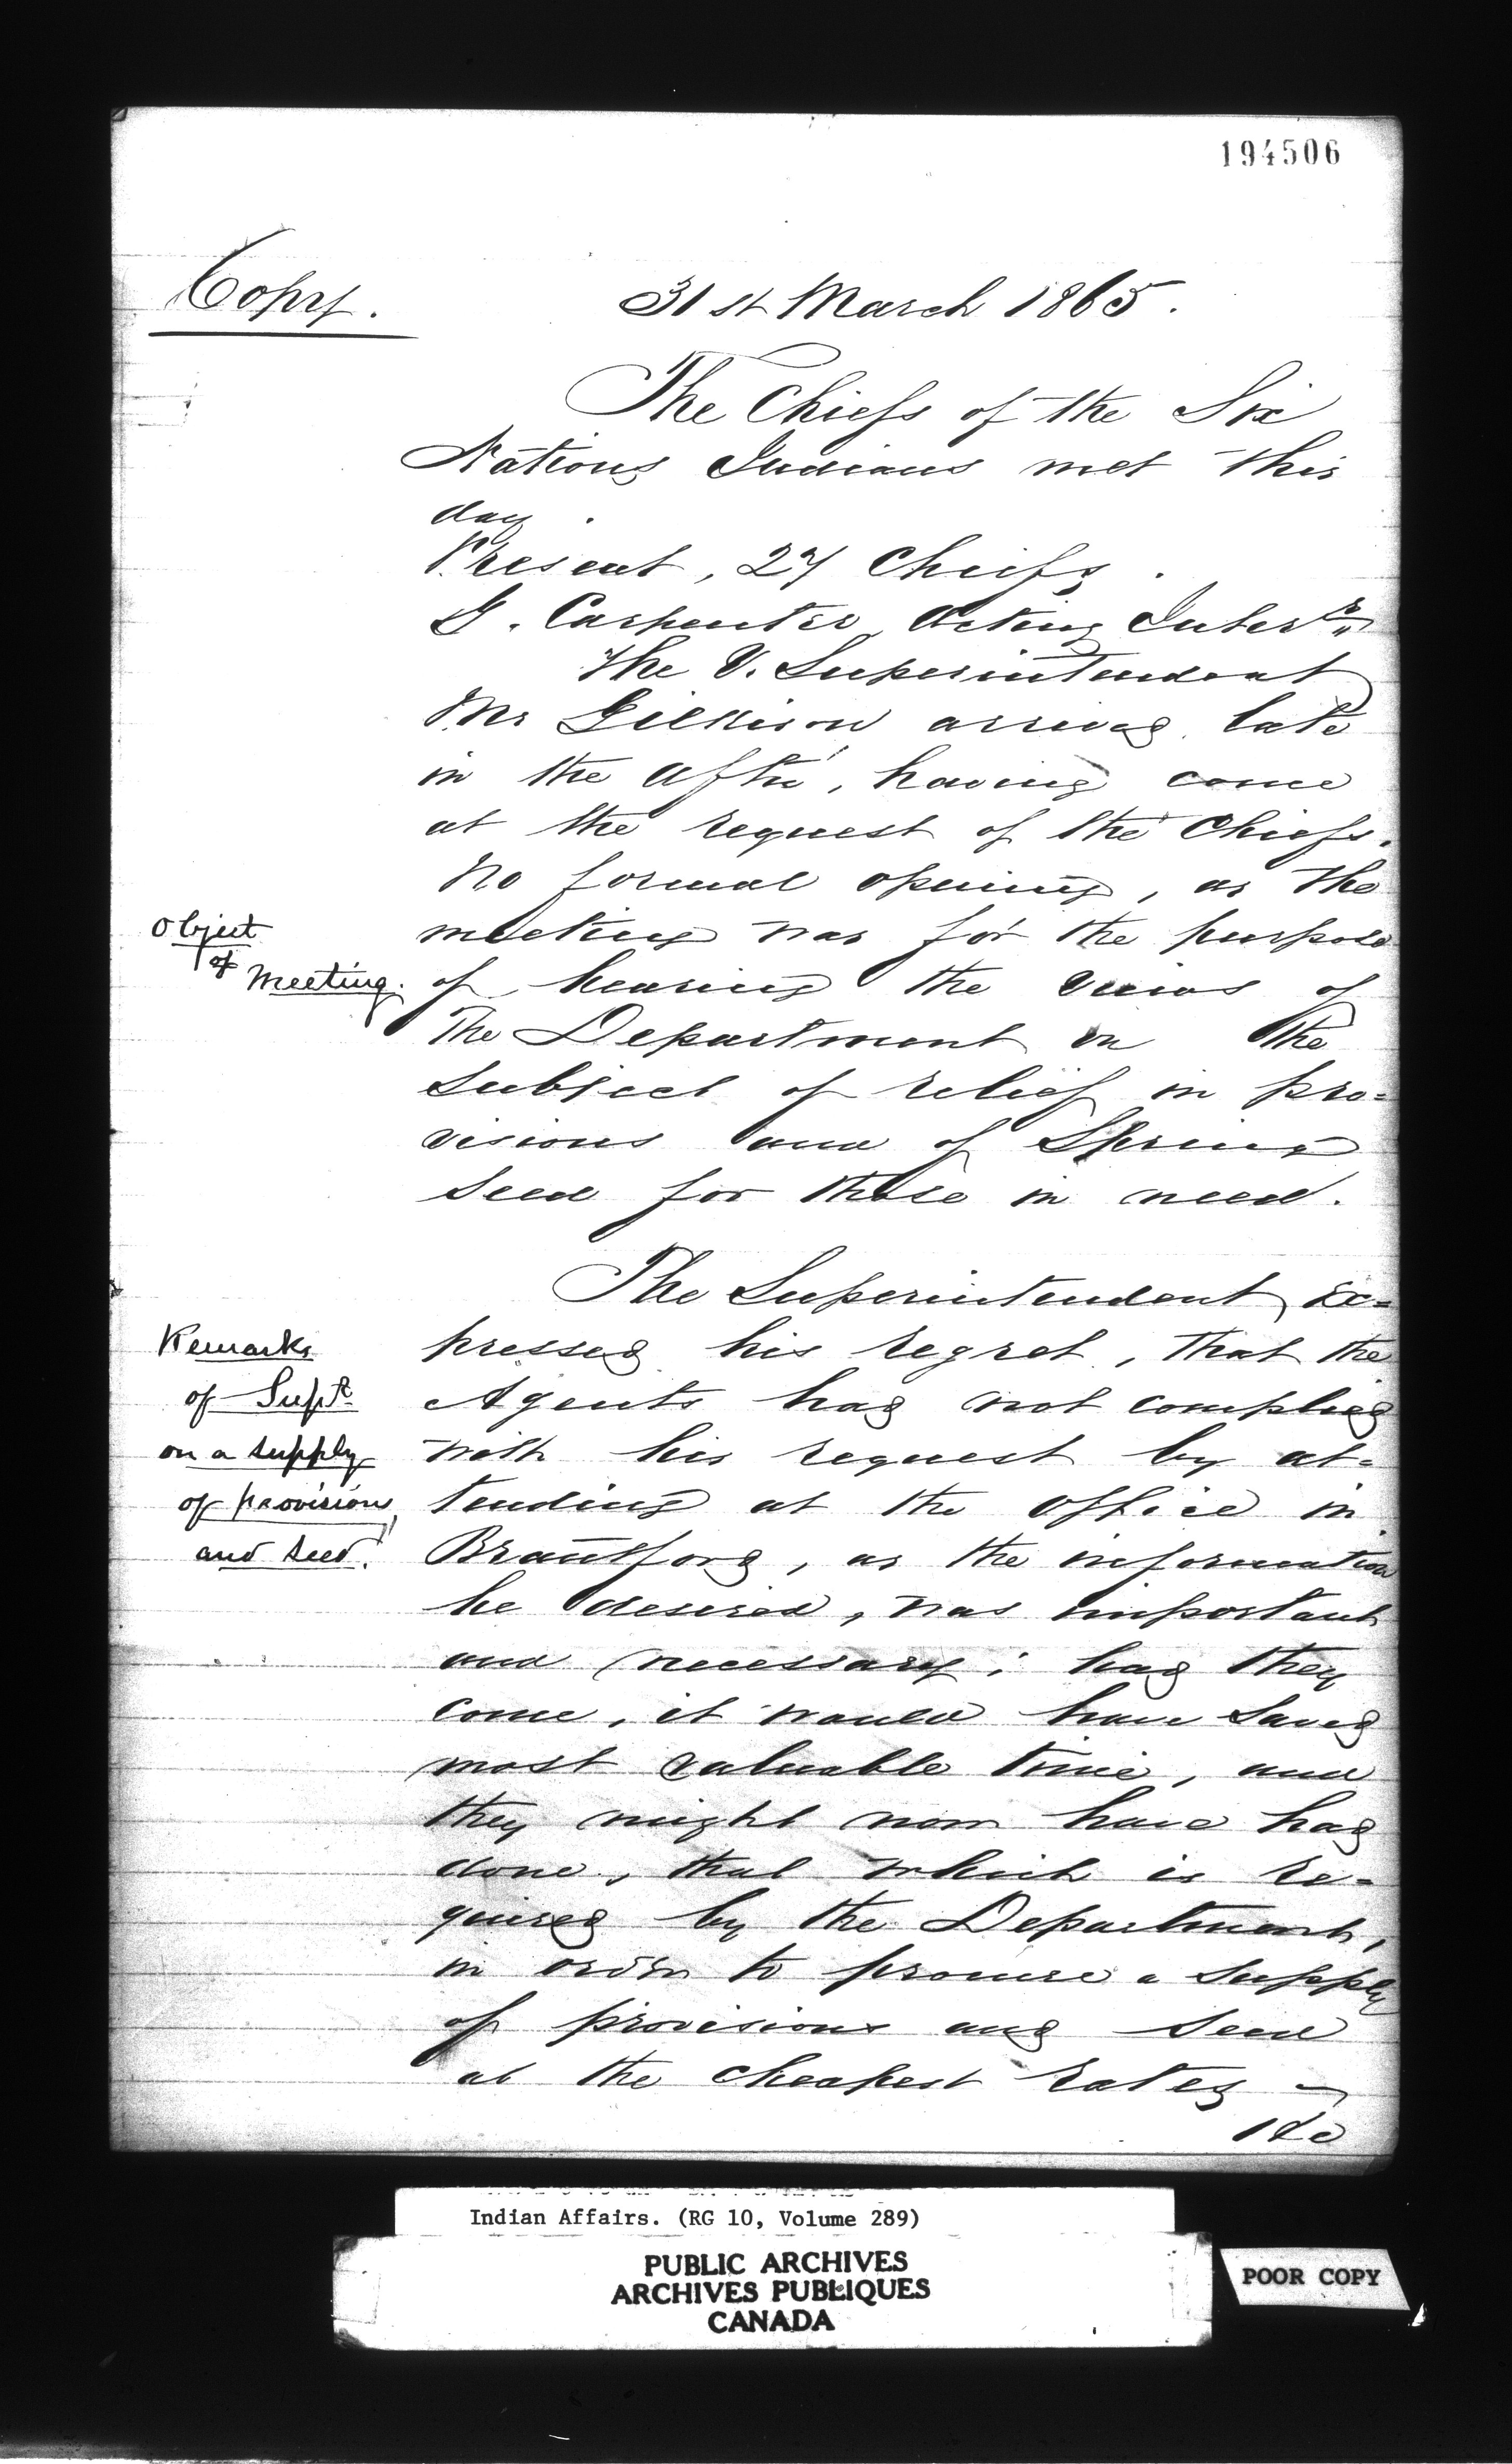 194506
Copy.
31st March 1865.
The Chiefs of the Six
Nations Indians met this
day.
Present, 27 Chiefs.
G. Carpenter Acting Inter
The V. Superintendent
Mr Gilkison arrived late
in the aftn', having come
at the request of the Chiefs.
No formal opening, as the
Object
of
Meeting.
meeting was for the purpose
of hearing the views of
The Department on the
subject of relief in pro=
visions and of Spring
Seed for those in need.
The Superintendent ex=
Remarks
of Supt
on a supply
of provisions,
and seed.
pressed his regret, that the
Agents had not complied
with his request by at=
tending at the office in
Brantford, as the information
he desired, was important
and necessary; had they
come, it would have saved
most valuable time, and
they might now have had
done, that which is re=
quired by the Department,
in order to procure a supply
of provisions and seed
at the cheapest rates
Indian Affairs. (RG 10, Volume 289)
PUBLIC ARCHIVES
ARCHIVES PUBLIQUES
CANADA
POOR COPY